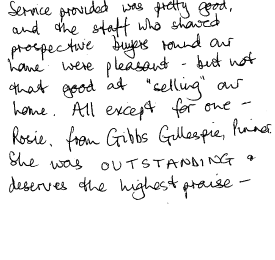 Service provided was pretty good,
and the staff who showed
prospective buyers round our
home were pleasant - but not
that good at "selling" our
home. All except for one -
Rosie, from Gibbs Gillespie, Pinner.
She was OUTSTANDING &
deserves the highest praise -